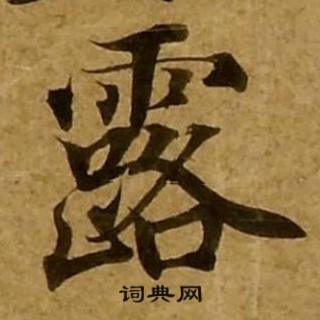 露
词典网